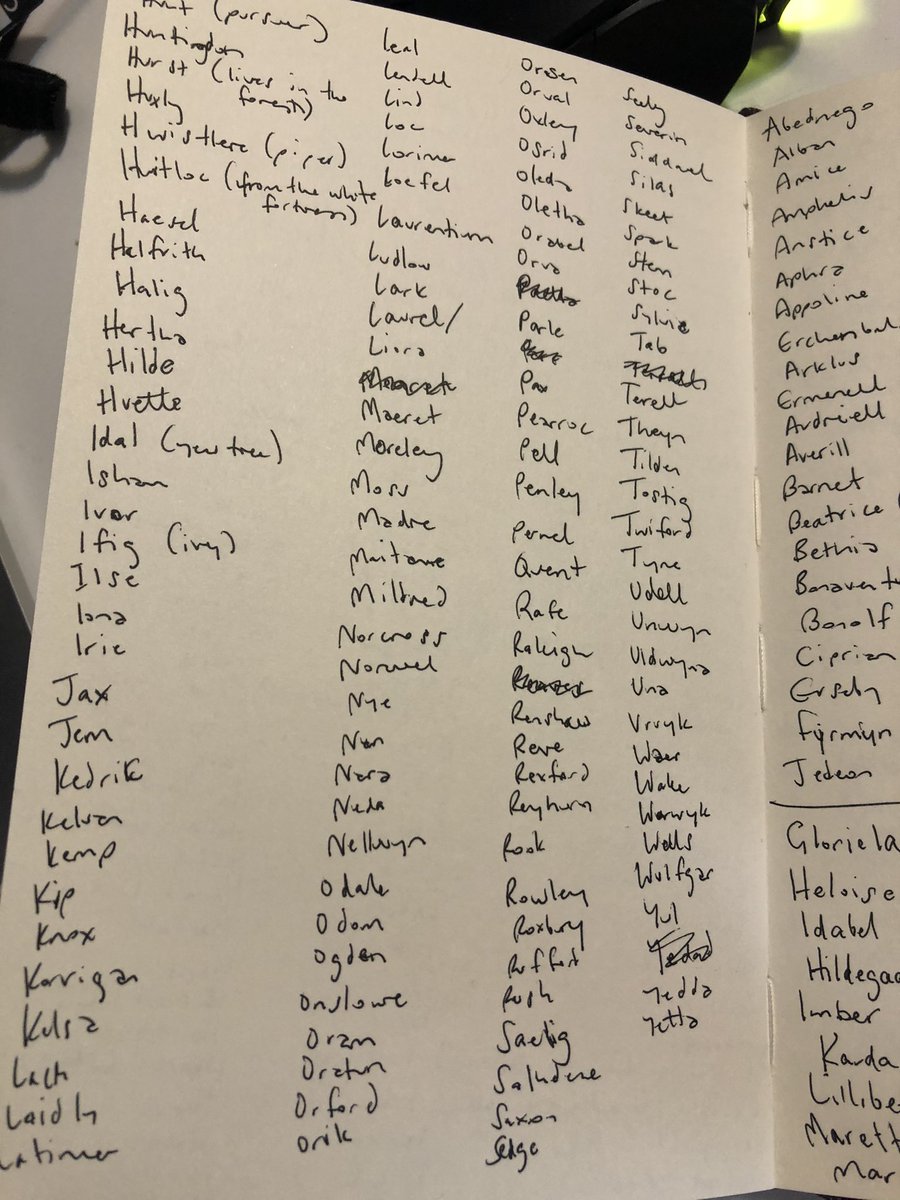 (pursuer)
Huntingdon
Hurst (lives in the
forest)
Huxly
Hwistlere (piper)
Huitloc (from the white
fortress)
Haesel
Helfrith
Halig
Hertha
Hilde
Hvette
Idal (yew tree)
Isham
Ivor
Ifig (ivy)
Ilse
Iona
Irie
Jax
Jem
Kedrik
Kelvan
Kemp
Kip
Knox
Korrigan
Kelsa
Lach
Laidly
Latimer
Leal
Lendell
Lind
Loc
Lorimer
Loefel
Laurentium
Ludlow
Lark
Laurel/
Liora
Maeret
Moreley
Madre
Mildred
Norcross
Norwel
Nye
Nan
Nara
Neda
Nellwyn
Odale
Odom
Ogden
Onslowe
Oram
Oratun
Orford
Orik
Oresen
Orval
Oxley
Osrid
Oleda
Oletha
Orabel
Orva
Parle
Pax
Pearroc
Pell
Penley
Pernel
Quent
Rafe
Raleigh
Renshaw
Reve
Rexford
Reyhurn
Rook
Rowley
Roxbury
Ruffert
Rush
Saelig
Saxon
Sedge
Seely
Severin
Siddael
Silas
Skeet
Spark
Sten
Stoc
Sylvie
Tab
Terell
Theyn
Tilden
Tostig
Twiford
Tyne
Udell
Unwyn
Uldwyna
Una
Vrvyk
Waer
Wake
Warwyk
Wells
Wulfgar
Yul
Yedda
Yetta
Abednego
Alban
Amice
Amphelis
Anstice
Aphra
Appoline
Erchenbal
Arklus
Ermenell
Audriell
Averill
Barnet
Beatrice (
Bethia
Bonavent
Bonolf
Ciprian
Erseby
Fyrmiyn
Jedeon
Gloriela
Heloise
Idabel
Hildegaa
Imber
Karda
Lillibe
Marett
Mar